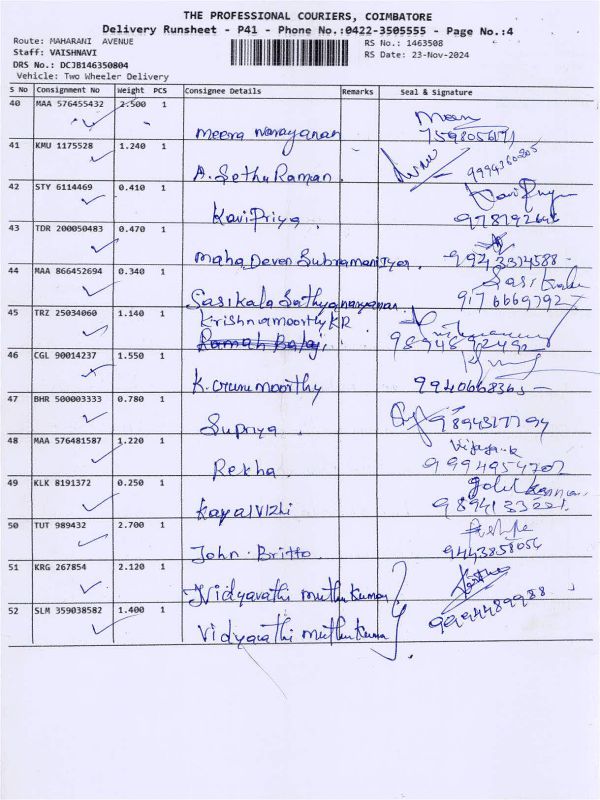 THE PROFESSIONAL COURIERS, COIMBATORE
Delivery Runsheet - P41 - Phone No.:0422-3505555 - Page No.:4
Route: MAHARANI AVENUE RS No.: 1463508
Staff: VAISHNAVI RS Date: 23-Nov-2024
DRS No.: DCJB146350804
Vehicle: Two Wheeler Delivery
S No Consignment No Weight PCS Consignee Details Remarks Seal & Signature
40 MAA 576455432 2.500 1
Meera Narayanan
41 KMU 1175528 1.240 1
A. Sethu Raman
42 STY 6114469 0.410 1
KaviPriya
43 TDR 200050483 0.470 1
Maha Deven Subramani Iyer. 9943314588
44 MAA 866452694 0.340 1
Sasikala Sathyanarayanan
45 TRZ 25034060 1.140 1
Krishnamoorthy KR
46 CGL 90014237 1.550 1
K. Gurumoorthy 9940668365
47 BHR 500003333 0.780 1
Supriya 9894317794
48 MAA 576481587 1.220 1
Rekha 9994954702
49 KLK 8191372 0.250 1
Kayalvizhi 9894133221
50 TUT 989432 2.700 1
John. Britto 9443858054
51 KRG 267854 2.120 1
Nidyavathi Muthu Kumar
52 SLM 359038582 1.400 1
Vidyavathi Muthu Kumar 9994489988